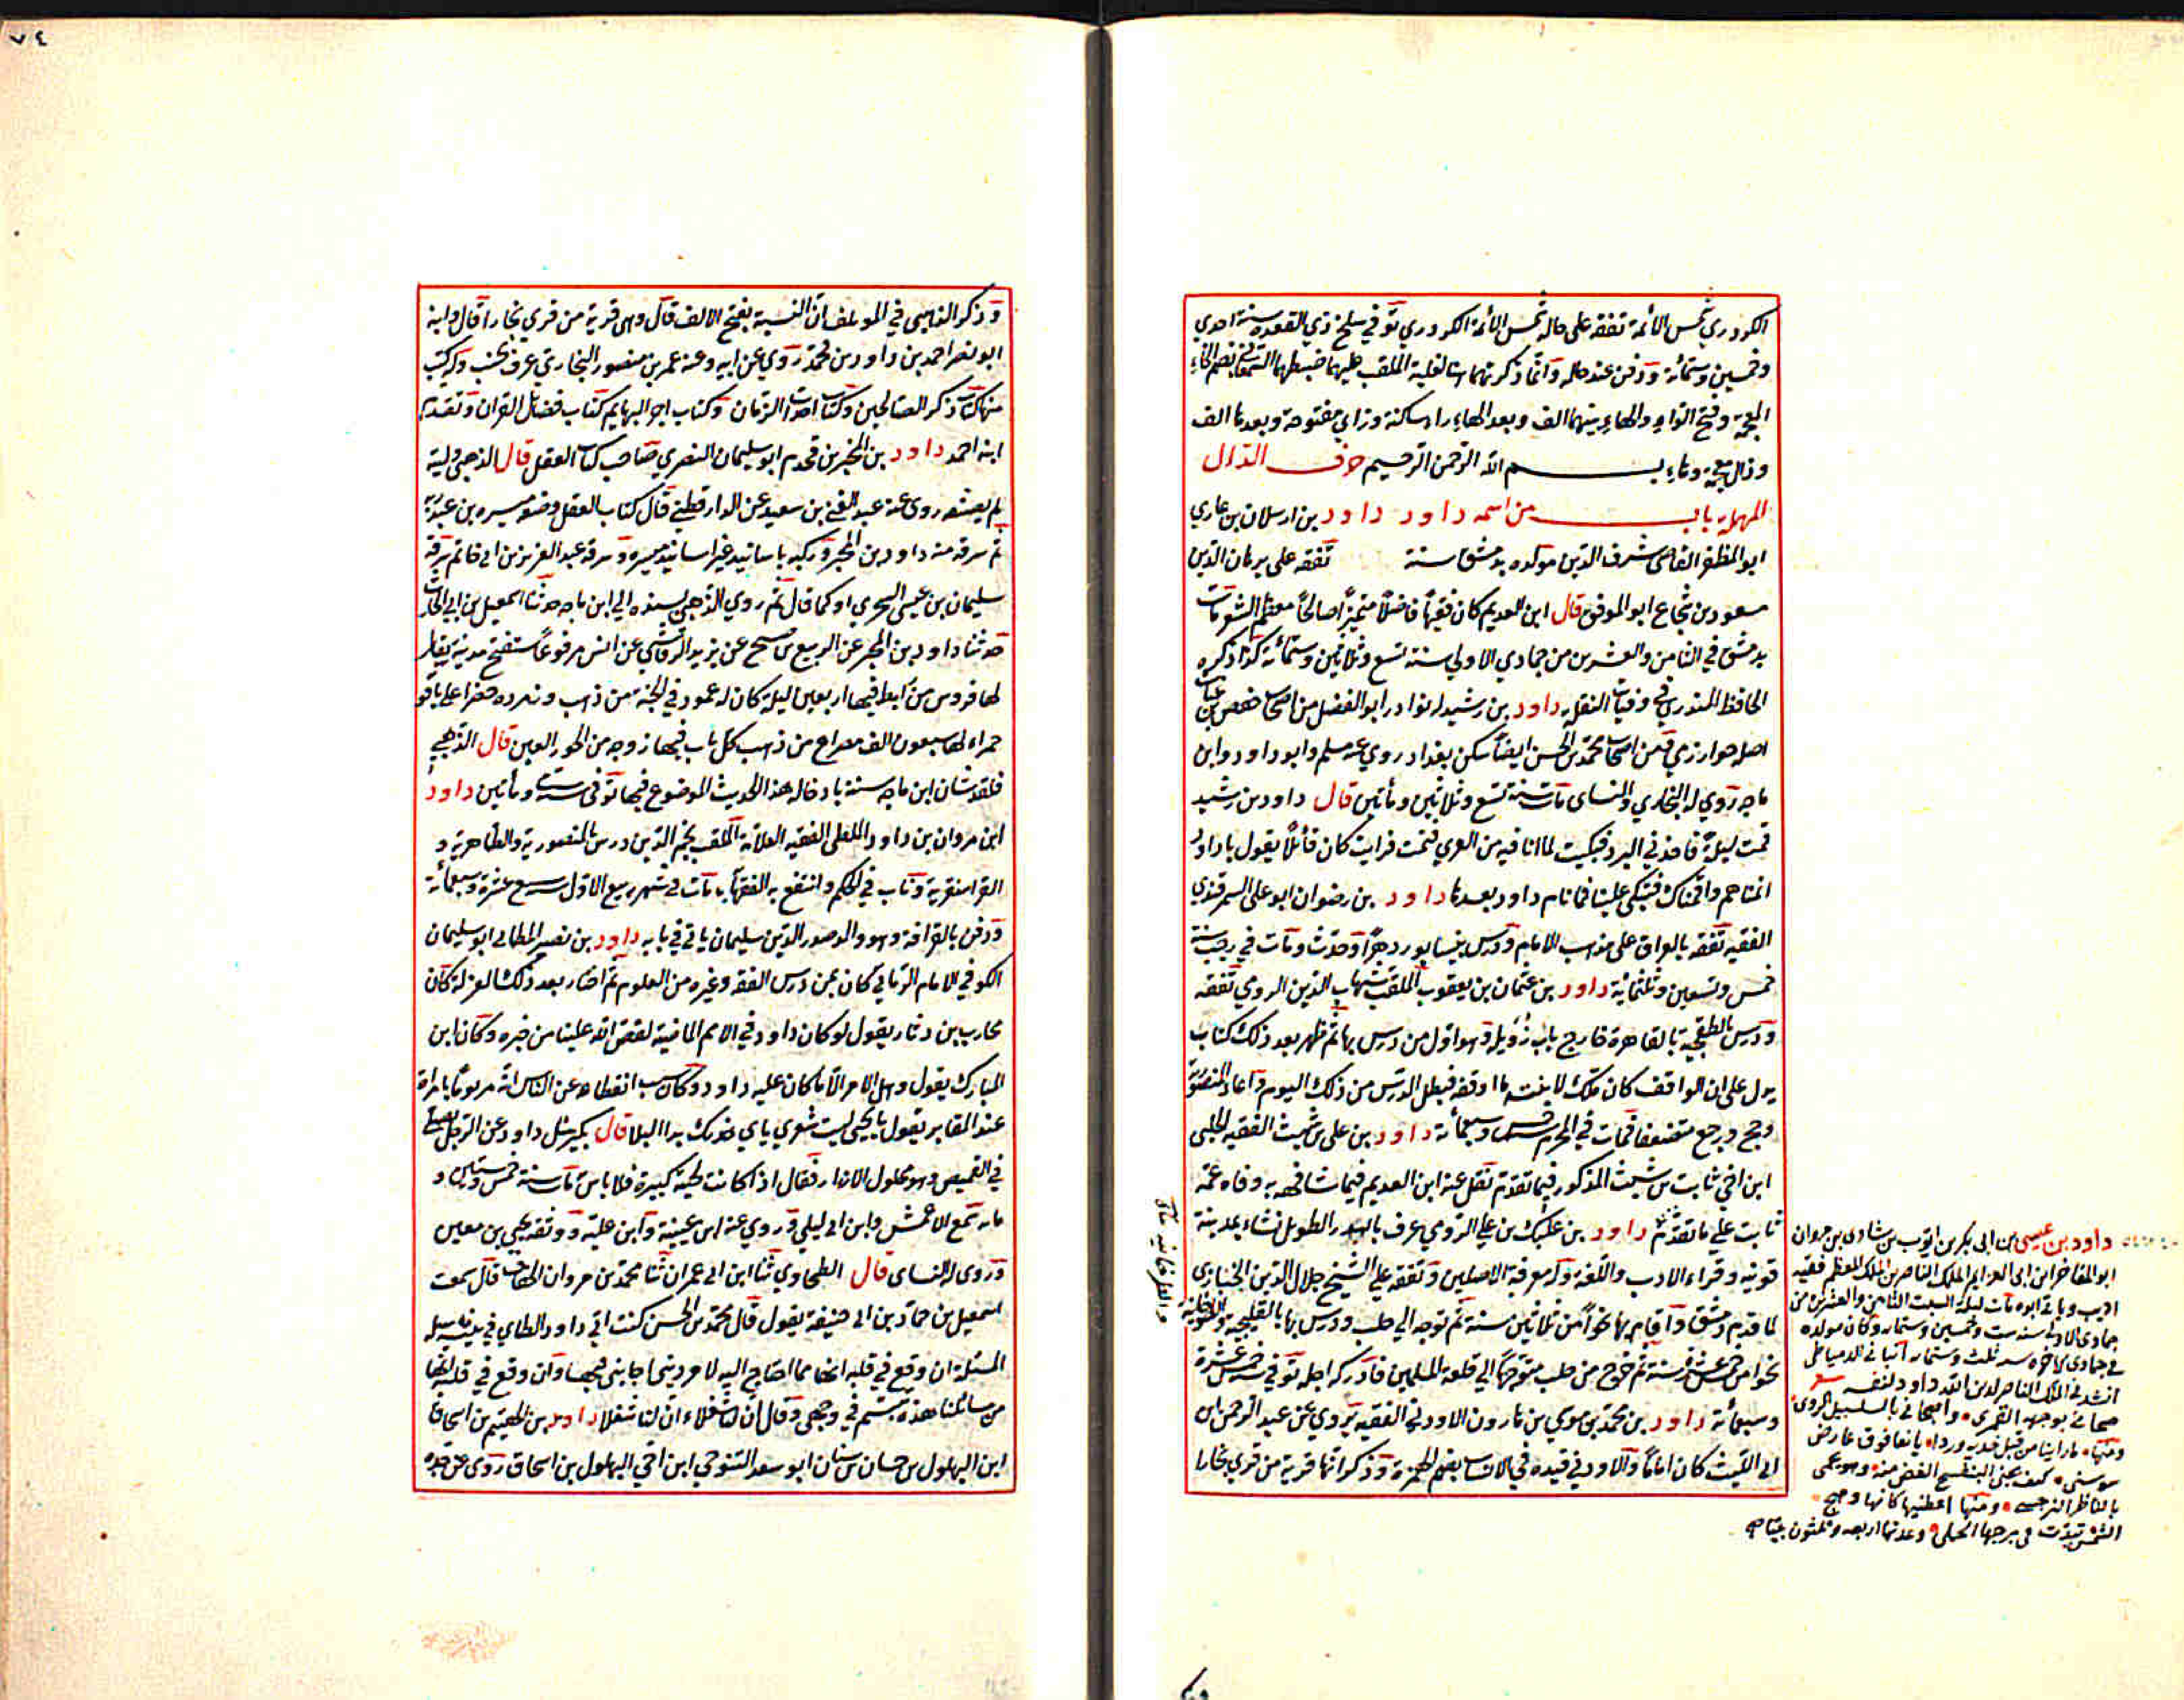 الكودري شمس الأئمة تفقه على خاله شمس الأئمة الكودري توفي سلخ ذي القعدة سنة احدي
وخمسين وستمائة ودفن عند خاله وانما ذكرتهما هنا لغلبة الملقب عليهما ضبطهما السمعاني بضم الخاء
المعجمة وفتح الواو والهاء بينهما الف وبعد الهاء راء ساكنة وزاي مفتوحة وبعدها الف
وذال معجمة وهاء بسم الله الرحمن الرحيم حرف الدال
المهملة باب من اسمه داود داود بن ارسلان بن غازي
ابو المظفر القاضي شرف الدين مولده بدمشق سنة تفقه على برهان الدين
مسعود بن شجاع ابو الموفق قال ابن العديم كان فقيها فاضلا متميزا صالحا معظم الشعر مات
بدمشق في الثامن والعشرين من جمادي الاولي سنة تسع وثلاثين وستمائة كذا ذكره
الحافظ المنذري في وفيات النقلة داود بن رشيد له نوادر ابو الفضل من اصحاب حفص بن غياث
اصله خوارزمي ومن اصحاب محمد بن الحسن ايضا سكن بغداد روي عنه مسلم وابو داود وابن
ماجه وروي له البخاري والنسائي مات سنة تسع وثلاثين ومأتين قال داود بن رشيد
قمت ليلة فاخذني البرد فبكيت لما انا فيه من العري فنمت فرايت كان قائلا يقول يا داود
انمناهم واقمناك فتبكي علينا فما نام داود بعدها داود بن رضوان ابو علي السمرقندي
الفقيه تفقه بالعراق على مذهب الامام ودرس بنيسابور دهرا وحدث ومات في رجب سنة
خمس وتسعين وثلثمائة داود بن عثمان بن يعقوب الملقب شهاب الدين الرومي تفقه
ودرس بالطقجية بالقاهرة خارج باب زويلة وهو اول من درس بها ثم ظهر بعد ذلك كتاب
يدل على ان الواقف كان ملك لابنته ما اوقفه فبطل الدرس من ذلك اليوم واعاد بالمنصورية
وحج ورجع متضعفا فمات في المحرم سنة خمس وسبعمائة داود بن علي بن شيث الفقيه الحلبي
ابن اخي ثابت بن شيث المذكور فيما تقدم نقل عنه ابن العديم فيما شافهه به وفاة عمه
ثابت على ما تقدم داود بن غلبك بن علي الرومي عرف بالبدر الطويل نشاء بمدينة
قونية وقراء الادب واللغة وله معرفة الاصلين وتفقه علي الشيخ جلال الدين الخبازي
لما قدم دمشق واقام بها نحوا من ثلاثين سنة ثم توجه الي حلب ودرس بها بالقليجية
نحوا من خمس عشرة سنة ثم خرج من حلب متوجها الي قلعة المسلمين فادركه اجله توفي سنة خمس عشرة
وسبعمائة داود بن محمد بن موسي بن هارون الاودني الفقيه يروي عن عبد الرحمن بن
ابي الليث كان اماما والاودني قيده في الانساب بضم الهمزة وذكر انها قرية من قري بخارا
داود بن عيسى بن ابي بكر بن ايوب بن شاذي بن مروان
ابو المفاخر ابن ابي العزايم الملك الناصر بن الملك المعظم فقيه
اديب مات ليلة السبت الثامن والعشرين من
جمادي الاولي سنة ست وخمسين وستمائة وكان مولده
في جمادي الاخرة سنة ثلث وستمائة
انشدني الملك الناصر لدين الله داود لنفسه
٧٤
وذكر الذهبي في المؤتلف ان النسبة بفتح الالف قال وهي قرية من قري بخارا قال وابنه
ابو نصر احمد بن داود بن محمد روي عن ابيه وعنه عمر بن منصور البخاري عرف بخنب وله كتب
منها كتاب ذكر الصالحين وكتاب احداث الزمان وكتاب اجر البهايم كتاب فضائل القران وتقدم
ابنه احمد داود بن المحبر بن قحذم ابو سليمان البصري صاحب كتاب العقل قال الذهبي وليته
لم يصنفه روي عنه عبد الغني بن سعيد عن الدارقطني قال كتاب العقل وضعه ميسرة بن عبد ربه
ثم سرقه منه داود بن المحبر وركبه باسانيد غير اسانيد ميسرة وسرقه عبد العزيز بن ابي ثم سرقه
سليمان بن عيسى السجزي او كما قال ثم روي الذهبي بسنده الي ابن ماجه حدثنا اسمعيل بن ابي الحارث
حدثنا داود بن المحبر عن الربيع بن صبيح عن يزيد الرقاشي عن انس مرفوعا ستفتح مدينة يقال
لها قزوين من رابط فيها اربعين ليلة كان له عمود في الجنة من ذهب وزمردة خضرا على ياقوتة
حمراء لها سبعون الف مصراع من ذهب كل باب فيها زوجة من الحور العين قال الذهبي
فلقد شان ابن ماجه سننه بادخاله هذا الحديث الموضوع فيها توفي سنة ست ومأتين داود
ابن مروان بن داود الملطي الفقيه العلامة الملقب نجم الدين درس بالمنصورية والظاهرية و
القراسنقرية وناب في الحكم وانتفع به الفقهاء مات في شهر ربيع الاول سنة سبع عشرة وسبعمائة
ودفن بالقرافة وهو والد صدر الدين سليمان ياتي في بابه داود بن نصير الطائي ابو سليمان
الكوفي الامام الرباني كان ممن درس الفقه وغيره من العلوم ثم اختار بعد ذلك العزلة كان
محارب بن دثار يقول لو كان داود في الامم الماضية لقص الله علينا من خبره وكان ابن
المبارك يقول وهل الامر الا ما كان عليه داود وكان سبب انقطاعه عن الناس انه مر يوما بامراة
عند المقابر تقول يا يحيى ليت شعري باي خديك بدا البلا قال بكير سئل داود عن الرجل يصلي
في القميص وهو محلول الازار فقال اذا كانت لحيته كبيرة فلا باس مات سنة خمس وستين و
مائة سمع الاعمش وابن ابي ليلي وروي عنه ابن عيينة وابن علية ووثقه يحيي بن معين
وروي له النسائي قال الطحاوي ثنا ابن ابي عمران ثنا محمد بن مروان الخفاف قال سمعت
اسمعيل بن حماد بن ابي حنيفة يقول قال محمد بن الحسن كنت اتي داود الطائي في بيته فاسئله
المسئلة ان وقع في قلبه انها مما احتاج اليه لامر ديني اجابني فيها وان وقع في قلبه انها
من مسائلنا هذه تبسم في وجهي وقال ان لنا شغلا ان لنا شغلا داود بن الهيثم بن اسحاق
ابن البهلول بن حسان بن سنان ابو سعد التنوخي ابن اخي البهلول بن اسحاق روي عن جده